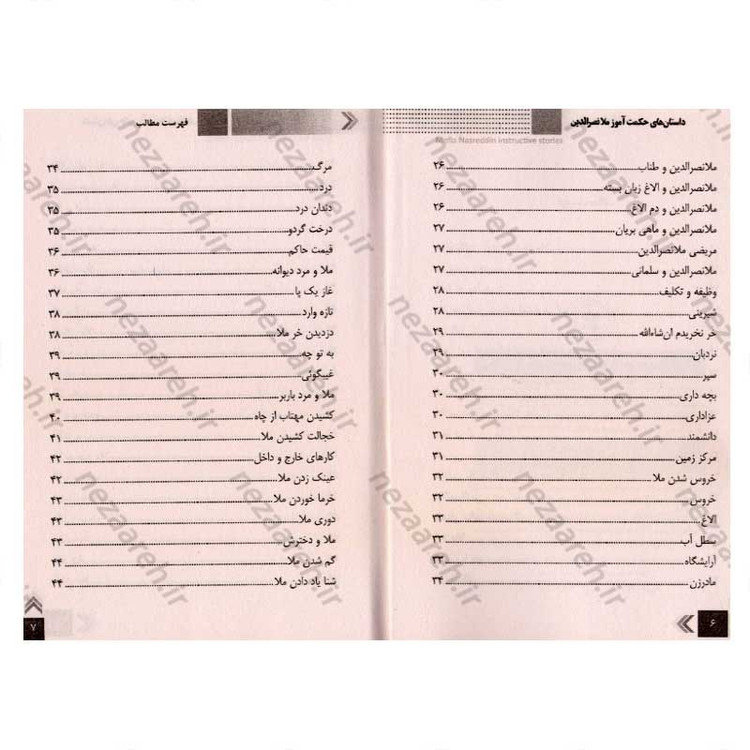 داستان‌های حکمت آموز ملا نصرالدین
Molla Nasreddin instructive stories
ملانصرالدین و طناب ۲۶
ملانصرالدین و الاغ زبان بسته ۲۶
ملانصرالدین و دم الاغ ۲۶
ملانصرالدین و ماهی بریان ۲۷
مریضی ملانصرالدین ۲۷
ملانصرالدین و سلمانی ۲۷
وظیفه و تکلیف ۲۸
شیرینی ۲۸
خر نخریدم ان‌شاءالله ۲۹
نردبان ۲۹
سپر ۳۰
بچه داری ۳۰
عزاداری ۳۰
دانشمند ۳۱
مرکز زمین ۳۱
خروس شدن ملا ۳۲
خروس ۳۲
الاغ ۳۳
سطل آب ۳۳
آرایشگاه ۳۳
مادرزن ۳۴
۶
فهرست مطالب
مرگ ۳۴
درد ۳۵
دندان درد ۳۵
درخت گردو ۳۵
قیمت حاکم ۳۶
ملا و مرد دیوانه ۳۶
غاز یک پا ۳۷
تازه وارد ۳۸
دزدیدن خر ملا ۳۸
به تو چه ۳۹
غیبگوئی ۳۹
ملا و مرد باربر ۳۹
کشیدن مهتاب از چاه ۴۰
خجالت کشیدن ملا ۴۱
کارهای خارج و داخل ۴۲
عینک زدن ملا ۴۲
خرما خوردن ملا ۴۳
دوری ملا ۴۳
ملا و دخترش ۴۳
گم شدن ملا ۴۴
شنا یاد دادن ملا ۴۴
۷
nezaareh.ir